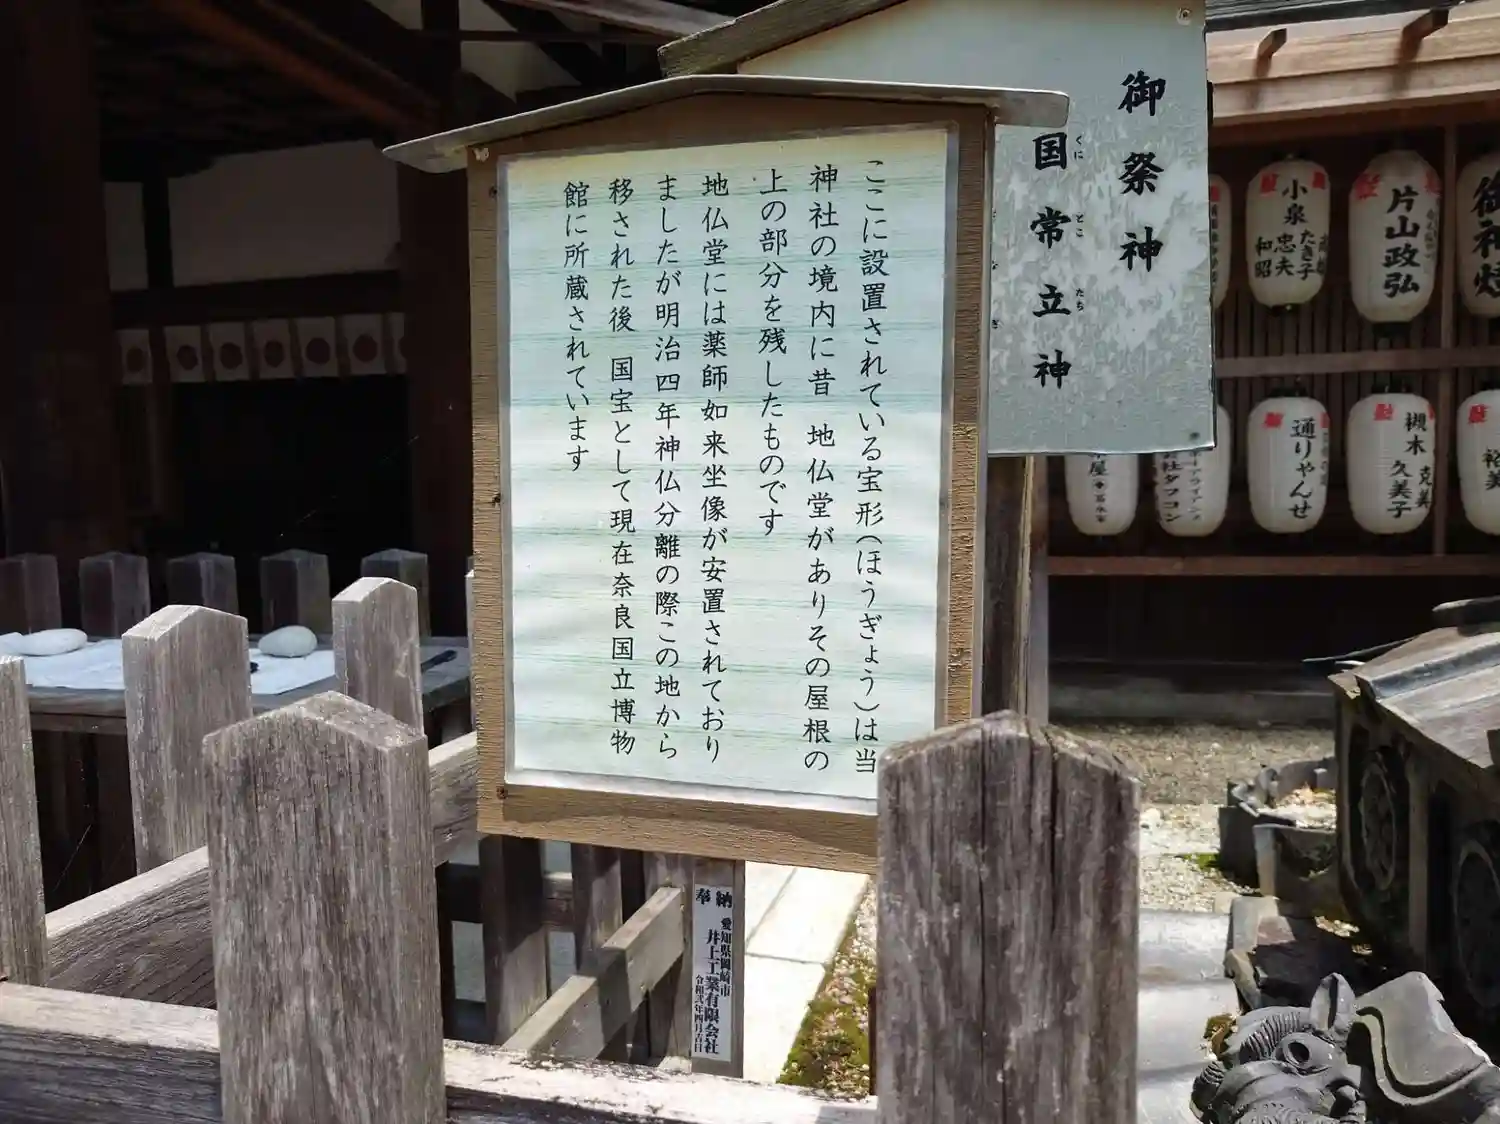 御祭神
国常立神
くに
とこ
たち
ここに設置されている宝形(ほうぎょう)は当
神社の境内に昔 地仏堂がありその屋根の
上の部分を残したものです
地仏堂には薬師如来坐像が安置されており
ましたが明治四年神仏分離の際この地から
移された後 国宝として現在奈良国立博物
館に所蔵されています
奉納
愛知県岡崎市
井上工業有限会社
令和弐年四月吉日
片山政弘
小泉
たき子
忠夫
和昭
槻木
克美
久美子
通りゃんせ